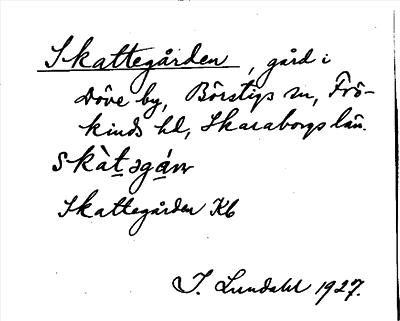 Skattegården, gård i
Döve by, Börstigs sn, Frö-
kinds hd, Skaraborgs län.
skàt̲əgá̲ɳ
Skattegården Kb
I. Lundahl 1927.